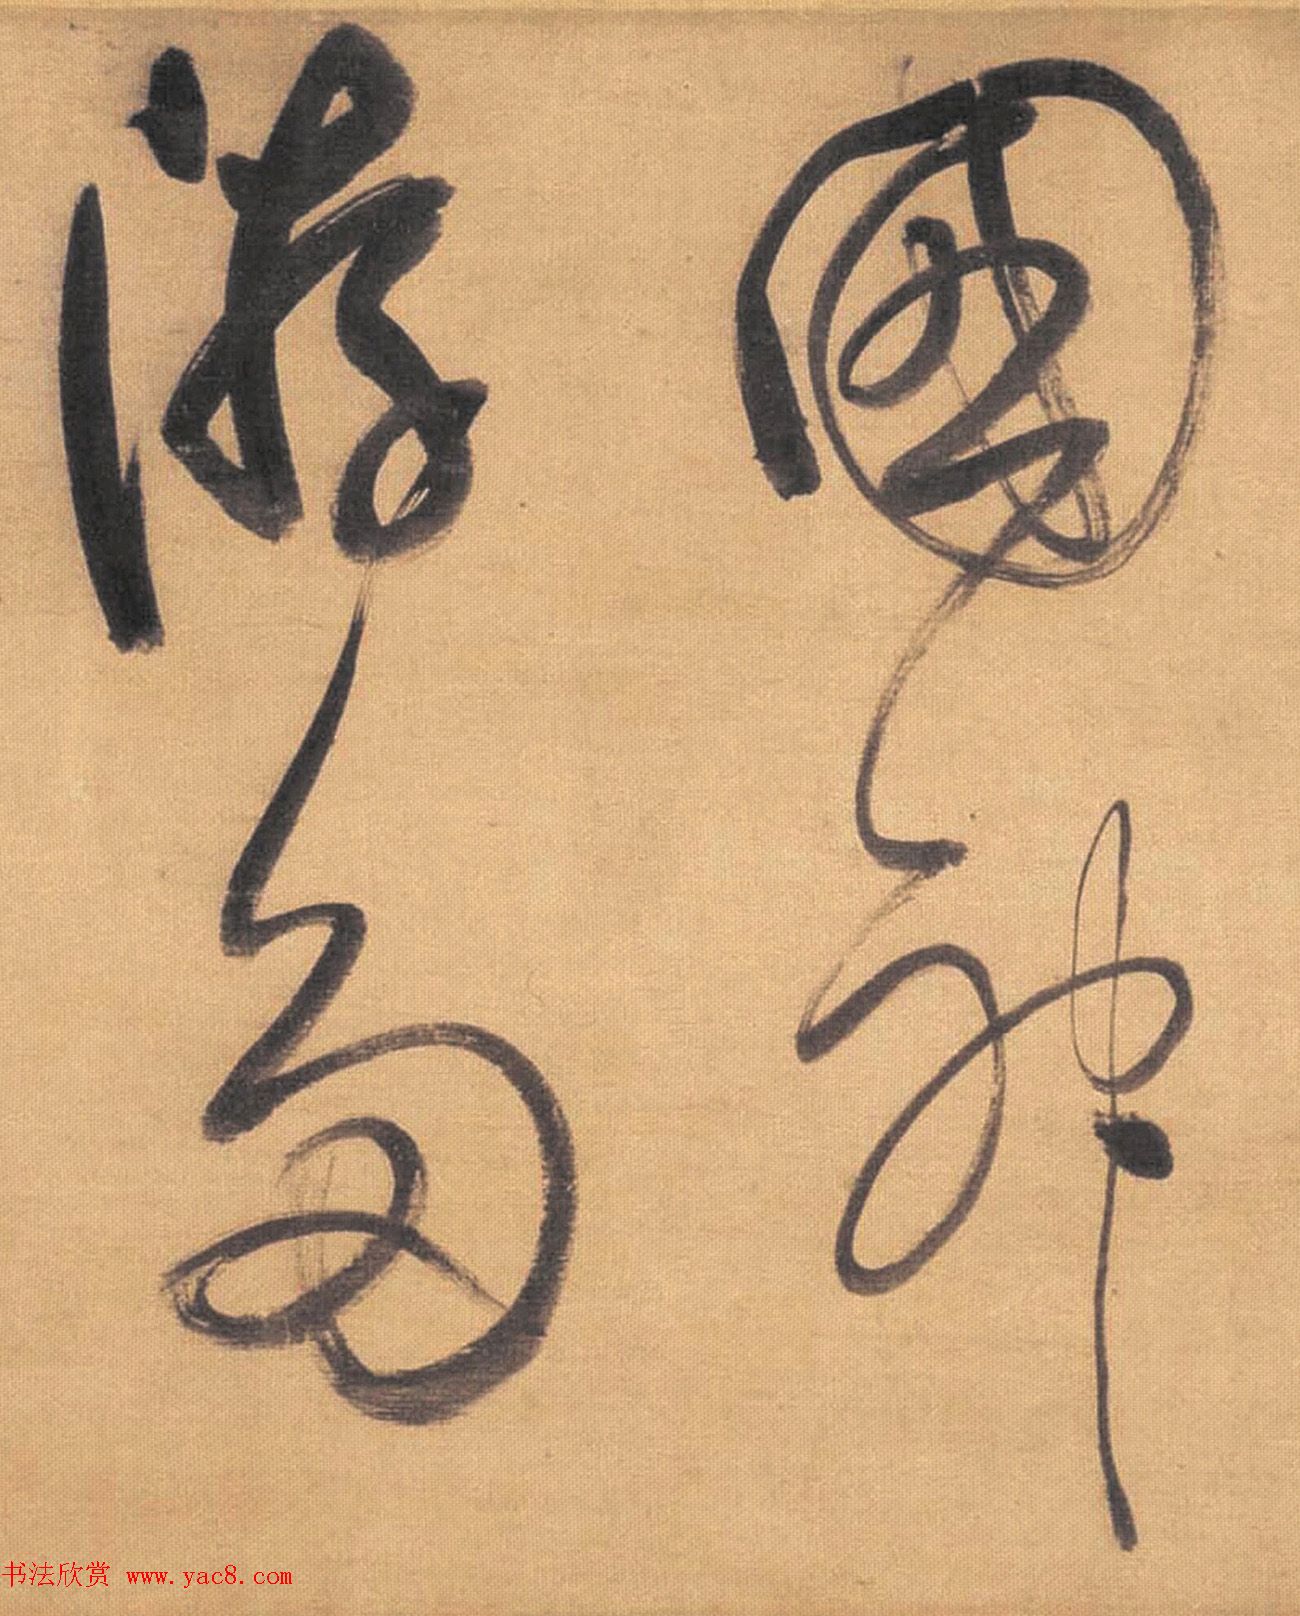 國神
游多
书法欣赏 www.yac8.com